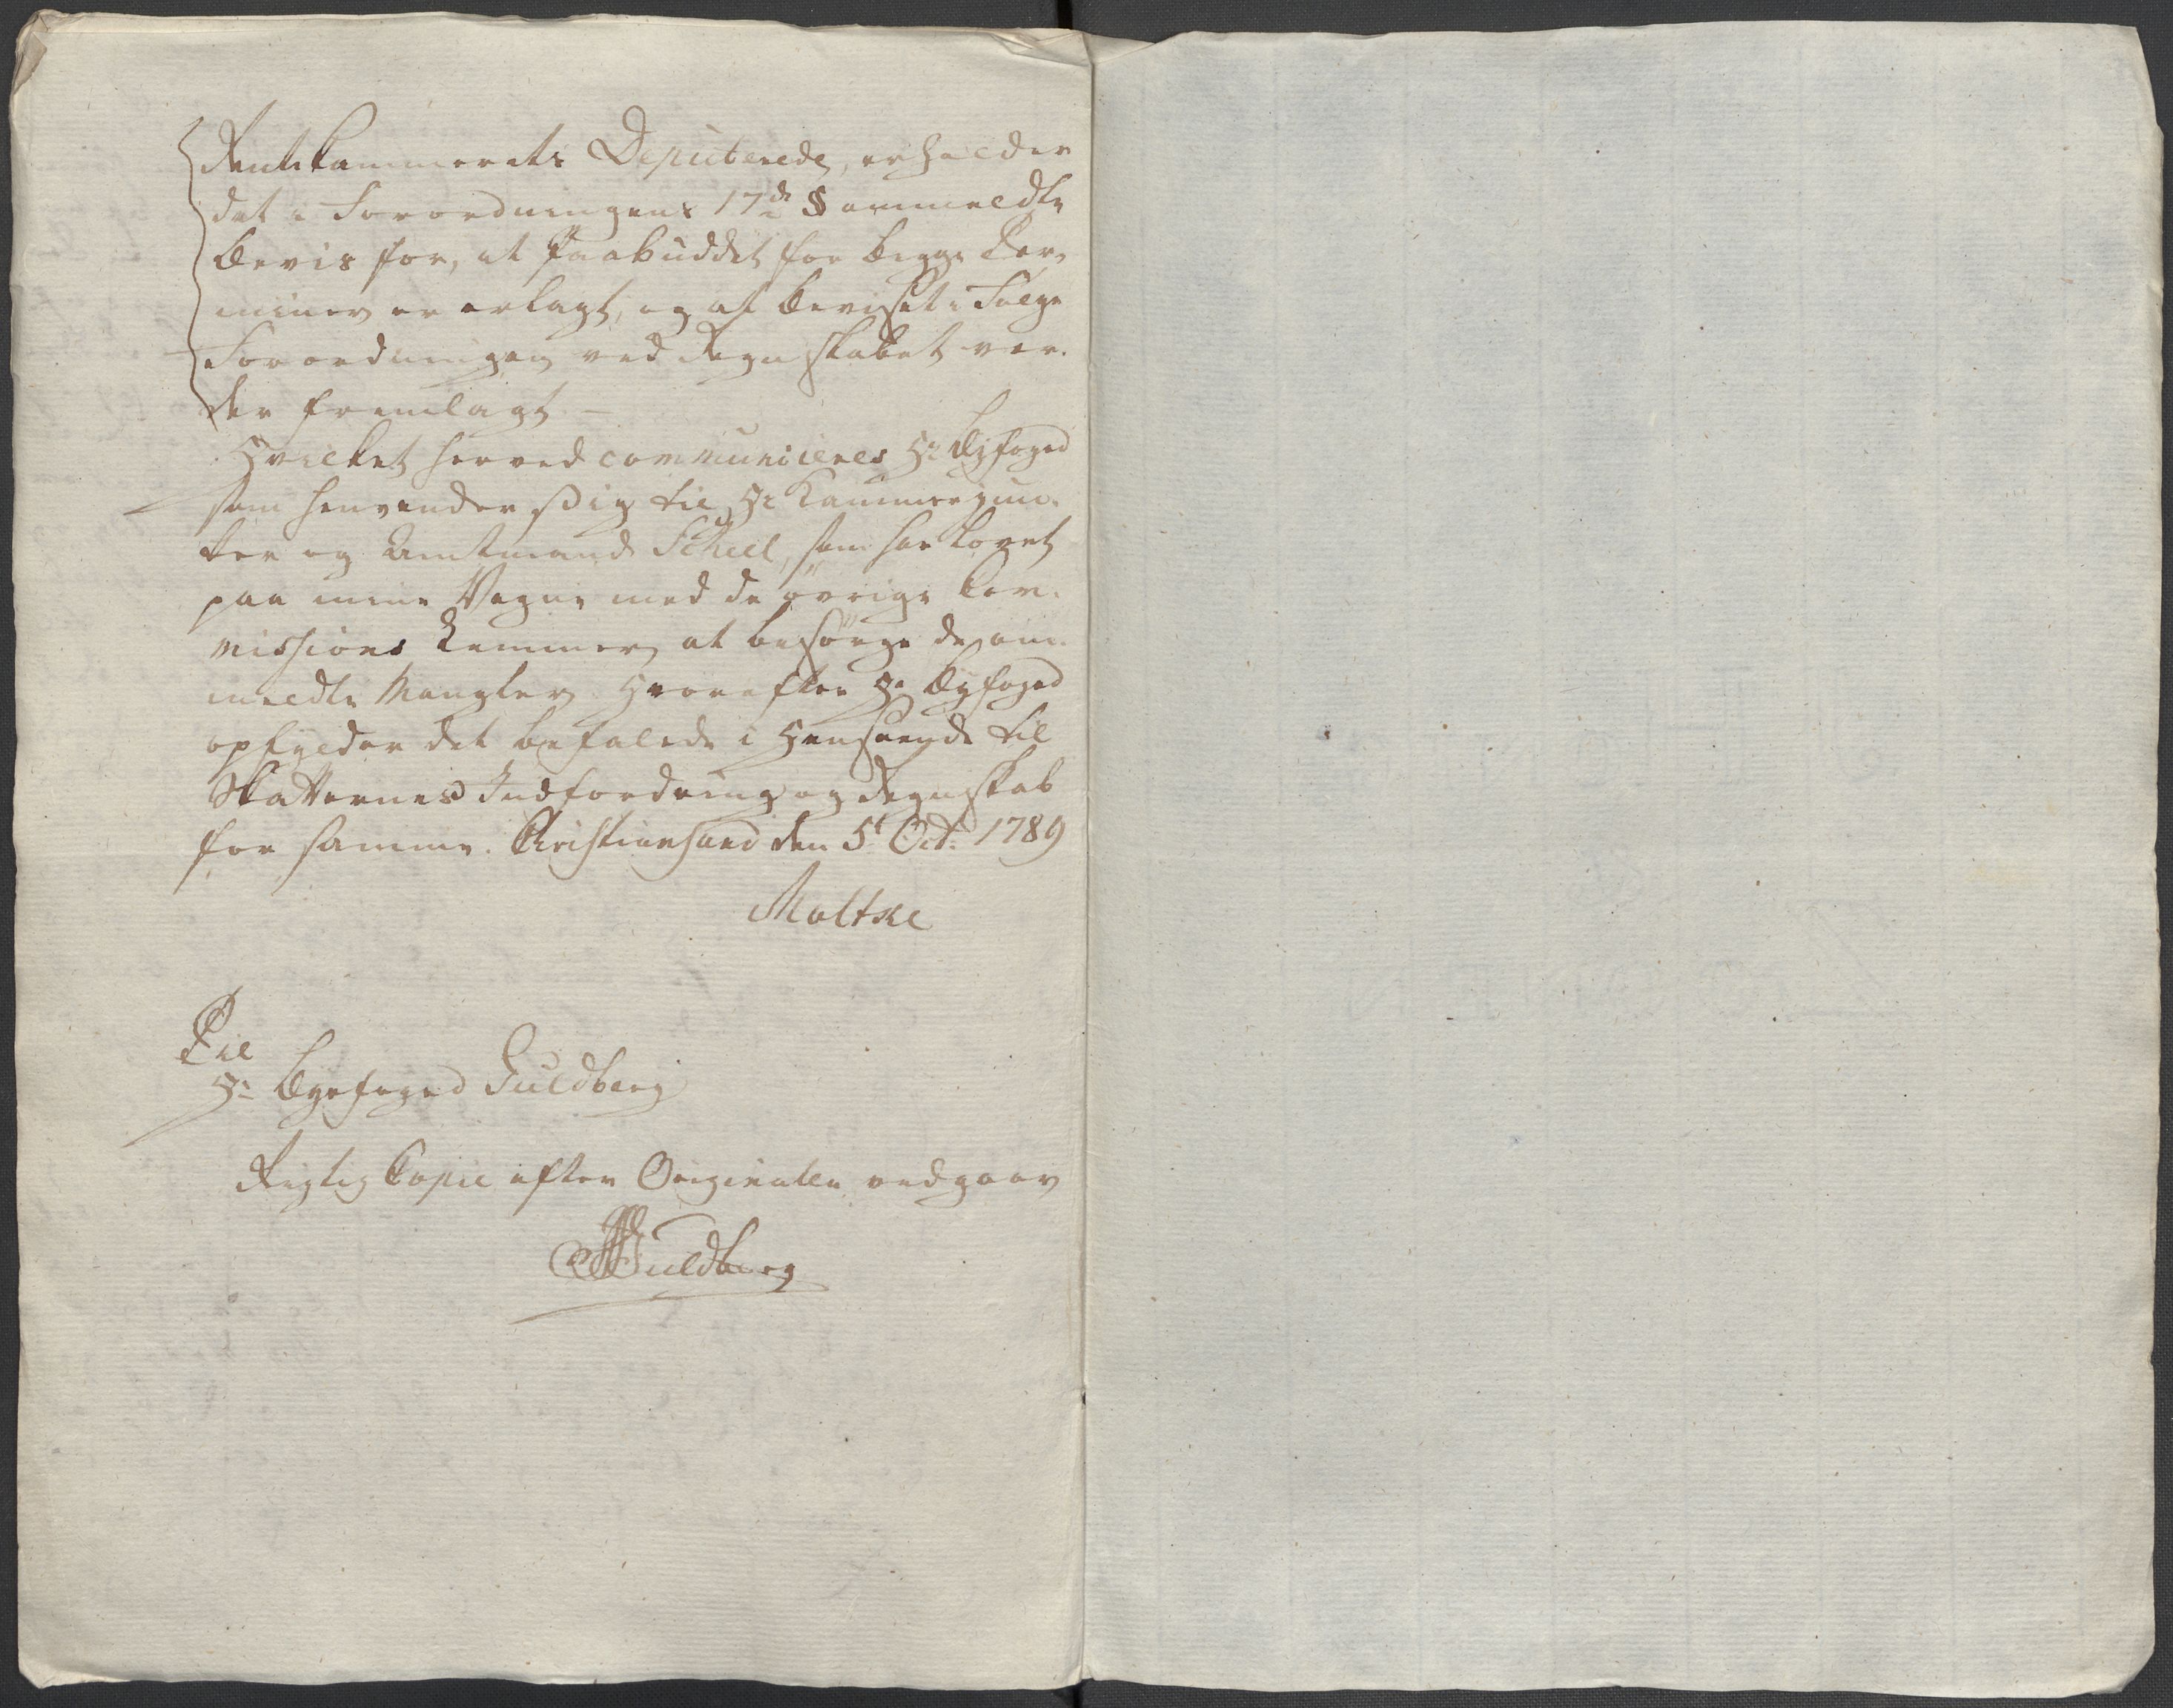 Rentekammerets Deputerede, erholder
det i Forordningens 17de § ommeldte
Beviis for, at Paabuddet for begge Ter-
miner er erlagt, og at Beviset i Følge
Forordningen ved Regnskabet vor-
der fremlagt —
Hvilket herved communiceres Hr. Byfoged
som henvender sig til Hr. Kammerjun-
ker og Amtmand Scheel, som har lovet
paa mine Vegne med de øvrige Com-
missions Lemmer at besørge de om-
meldte Mangler. Hvorefter Hr. Byfoged
opfylder det befalede i Henseende til
Skatternes Indfordring og Regnskab
for samme. Christiansand den 5t Oct: 1789
Moltke
Til
Hr. Byefoged Guldberg
Rigtig Copie efter Originalen vedgaaer
Guldberg